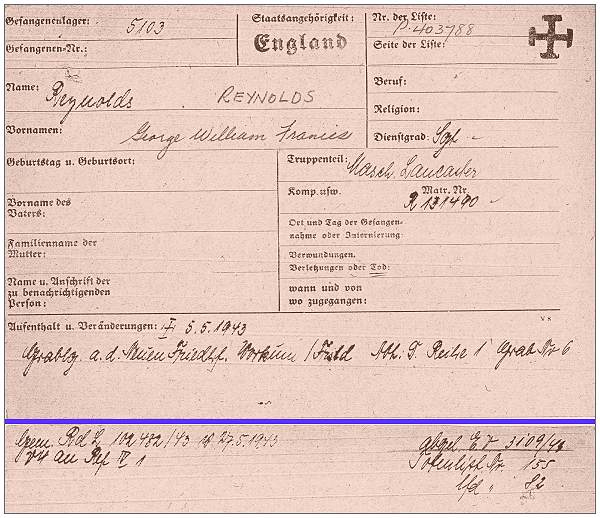 Gefangenenlager: 5103
Gefangenen-Nr.:
Staatsangehörigkeit:
England
Nr. der Liste:
P. 403788
Seite der Liste:
Name: Reynolds REYNOLDS
Vornamen: George William Francis
Beruf:
Religion:
Dienstgrad: Sgt –
Geburtstag u. Geburtsort:
Truppenteil: Masch. Lancaster
Komp. usw. Matr. Nr.
R 131490 –
Vorname des
Vaters:
Familienname der
Mutter:
Name u. Anschrift der
zu benachrichtigenden
Person:
Ort und Tag der Gefangen-
nahme oder Internierung:
Verwundungen,
Verletzungen oder Tod:
wann und von
wo zugegangen:
VS
Aufenthalt u. Veränderungen: 5.5.1943
Grablg. a. d. Neuen Friedhf. Workum / Abt. D. Reihe 1 Grab Nr 6
Gem. R d L 102482/43 v 27.5.1943
an Ref IV 1
Abgel. E V 3109/43
Totenlist. Nr. 155
lfd " 82